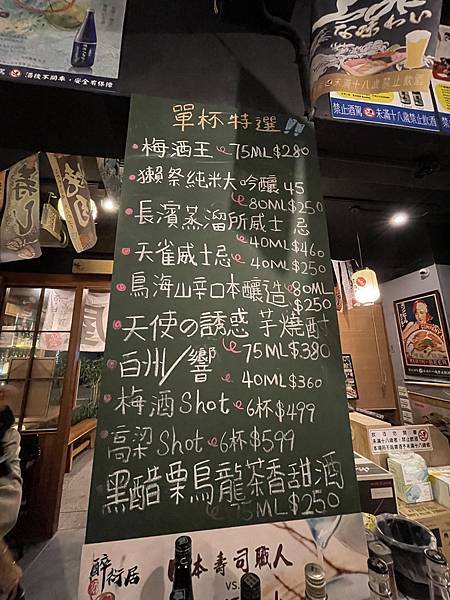 酒後不開車，安全有保障
禁止酒駕 未滿十八歲禁止飲酒
單杯特選!!
梅酒王 75ML$280
獺祭純米大吟釀45
80ML$250
長濱蒸溜所威士忌
40ML$460
天雀威士忌 40ML$250
鳥海山辛口本釀造 80ML
$250
天使の誘惑 芋燒酎
75ML$380
白州/響
40ML$360
梅酒Shot 6杯$499
高粱Shot 6杯$599
黑醋栗烏龍茶香甜酒
75ML$250
醉衍居
日本壽司職人
VS.